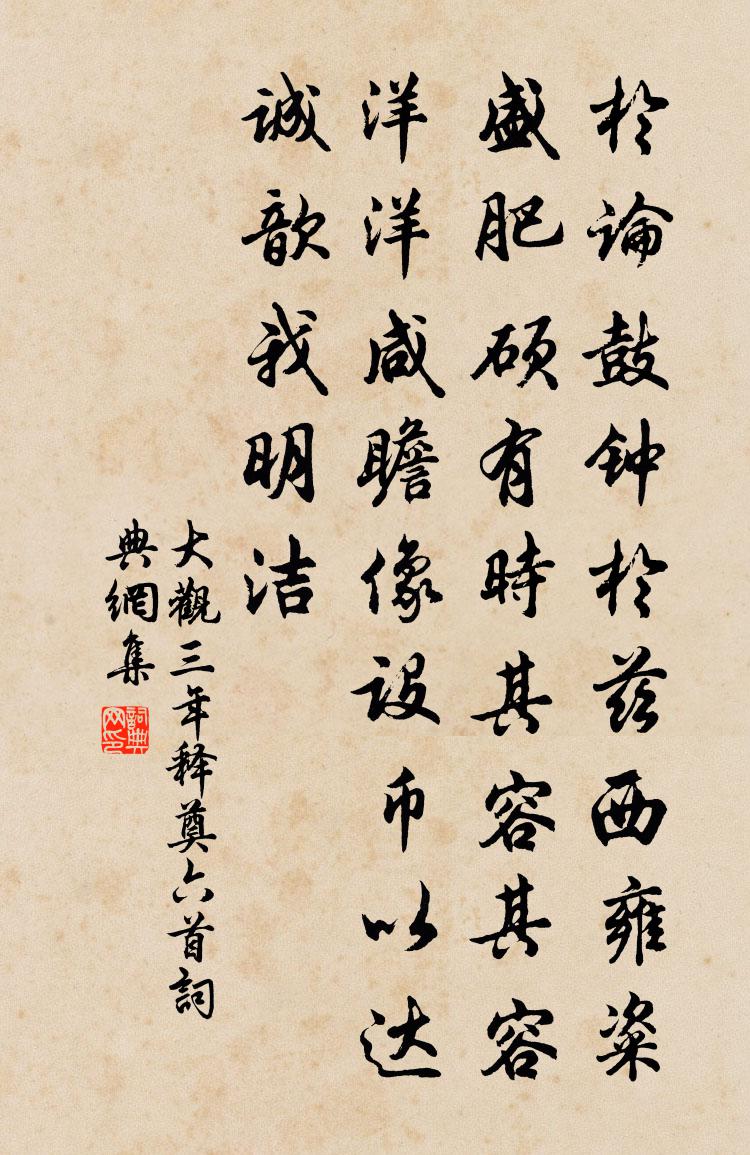 於論鼓钟於兹西雍粢
盛肥硕有時其容其容
洋洋咸瞻像设币以达
诚歆我明洁
大觀三年释奠六首詞
典網集
詞典
网印